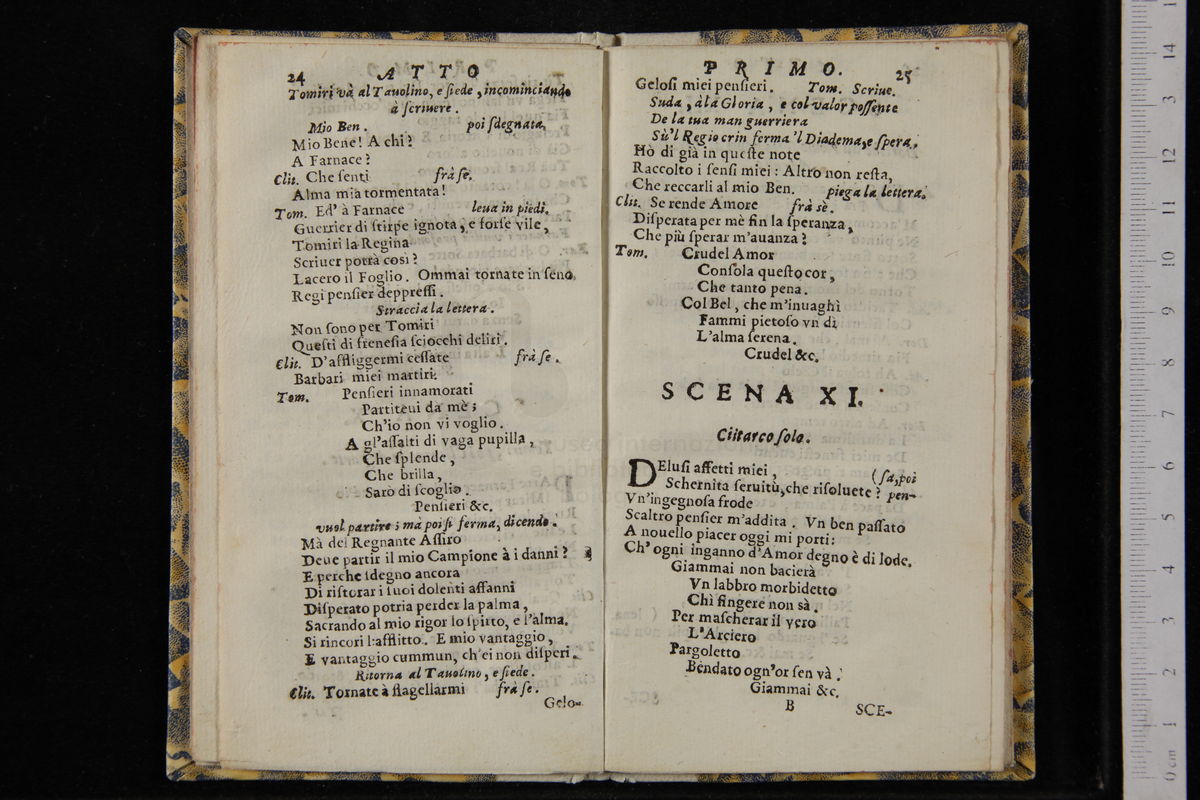 24 ATTO
Tomiri và al Tauolino, e ſiede, incominciando
à ſcriuere.
Mio Ben. poi ſdegnata.
Mio Bene! A chi?
A Farnace?
Clit. Che ſenti frà ſe.
Alma mia tormentata!
Tom. Ed' à Farnace leua in piedi.
Guerrier di ſtirpe ignota, e forſe vile,
Tomiri la Regina
Scriuer potrà così?
Lacero il Foglio. Ommai tornate in ſeno
Regi penſier deppreſſi.
Straccia la lettera.
Non ſono per Tomiri
Queſti di freneſia ſciocchi deliri.
Clit. D'affliggermi ceſſate frà ſe.
Barbari miei martiri.
Tom. Penſieri innamorati
Partiteui da mè;
Ch'io non vi voglio.
A gl'aſſalti di vaga pupilla,
Che ſplende,
Che brilla,
Sarò di ſcoglio.
Penſieri &c.
vuol partire; mà poi ſi ferma, dicendo.
Mà del Regnante Aſſiro
Deue partir il mio Campione à i danni?
E perche ſdegno ancora
Di riſtorar i ſuoi dolenti affanni
Diſperato potria perder la palma,
Sacrando al mio rigor lo ſpirto, e l'alma.
Si rincori l'afflitto. E mio vantaggio,
E vantaggio cummun, ch'ei non diſperi.
Ritorna al Tauolino, e ſiede.
Clit. Tornate à flagellarmi frà ſe.
Gelo-
PRIMO. 25
Geloſi miei penſieri. Tom. Scriue.
Suda, à la Gloria, e col valor poſſente
De la tua man guerriera
Sù'l Regio crin ferma 'l Diadema, e ſpera.
Hò di già in queſte note
Raccolto i ſenſi miei: Altro non reſta,
Che reccarli al mio Ben. piega la lettera.
Clit. Se rende Amore frà sè.
Diſperata per mè fin la ſperanza,
Che più ſperar m'auanza?
Tom. Crudel Amor
Conſola queſto cor,
Che tanto pena.
Col Bel, che m'inuaghì
Fammi pietoſo vn dì
L'alma ſerena.
Crudel &c.
SCENA XI.
Clitarco ſolo.
DEluſi affetti miei, (ſa, poi
Schernita ſeruitù, che riſoluete? pen-
Vn'ingegnoſa frode
Scaltro penſier m'addita. Vn ben paſſato
A nouello piacer oggi mi porti:
Ch' ogni inganno d'Amor degno è di lode.
Giammai non bacierà
Vn labbro morbidetto
Chì fingere non sà.
Per maſcherar il vero
L'Arciero
Pargoletto
Bendato ogn'or ſen và.
Giammai &c.
B SCE-